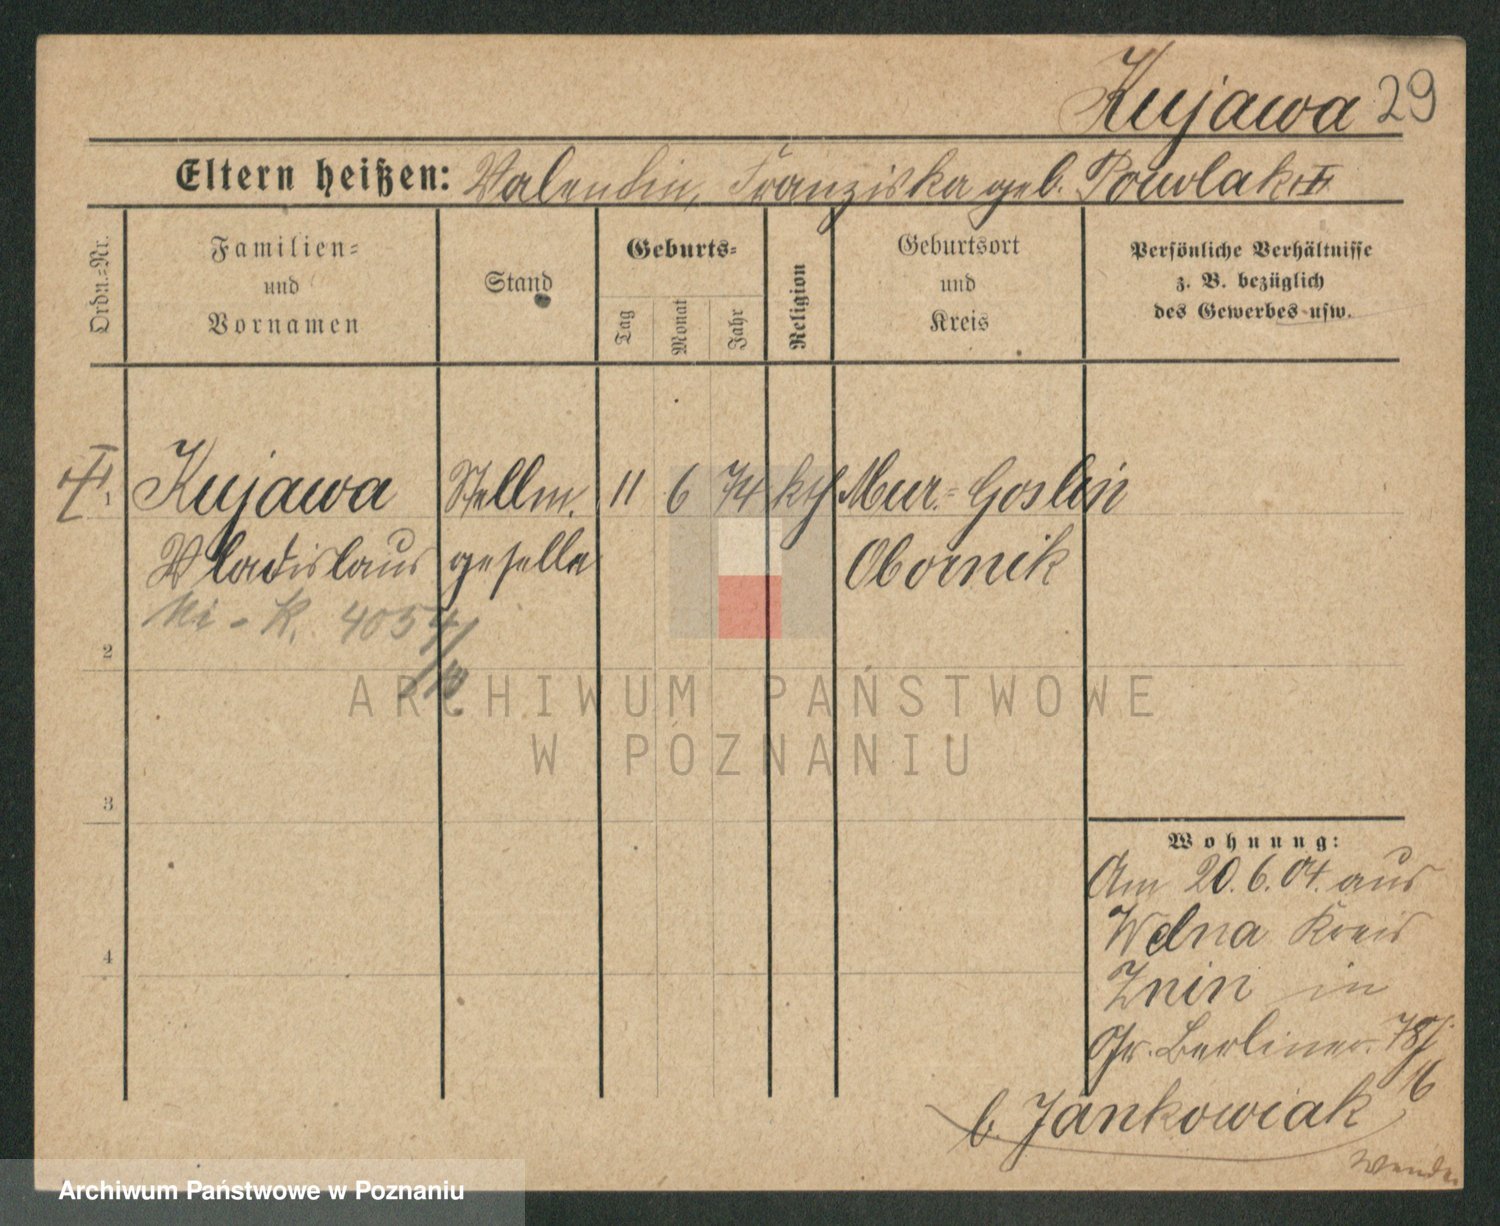 Kujawa 29
Eltern heißen: Valentin, Franziska geb. Powlak
Ordn.=Nr.
Familien=
und
Vornamen
Stand
Geburts=
Tag
Monat
Jahr
Religion
Geburtsort
und
Kreis
Persönliche Verhältnisse
z. B. bezüglich
des Gewerbes usw.
1 Kujawa Stellm. 11 6 74 kth Mur.=Goslin
Wladislaus geselle Obornik
Mi - K. 4054/
2
ARCHIWUM PAŃSTWOWE
W POZNANIU
3
Wohnung:
Am 20.6.04. aus
Welna Kreis
4
Znin in
Gr. Berliner. 78
b. Jankowiak
Wenden
Archiwum Państwowe w Poznaniu